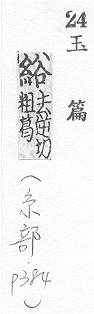 24
玉篇
綌
去逆切
粗葛
(糸部.p384)